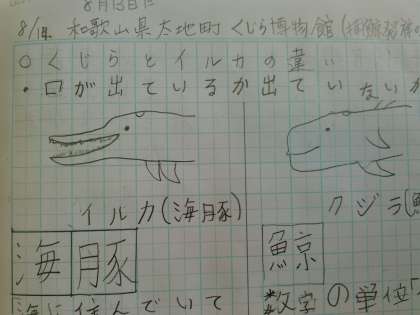 8月13日
8/14 和歌山県太地町 くじら博物館(捕鯨発祥の
○くじらとイルカの違い
・口が出ているか出ていないか
イルカ(海豚)
クジラ(鯨
海豚
鯨
海に住んでいて
数字の単位